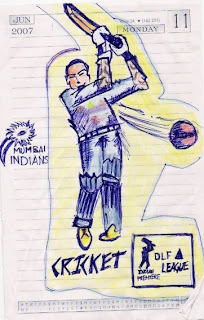 JUN
2007
MONDAY
11
MUMBAI
INDIANS
CRICKET
DLF
LEAGUE
PREMIERE